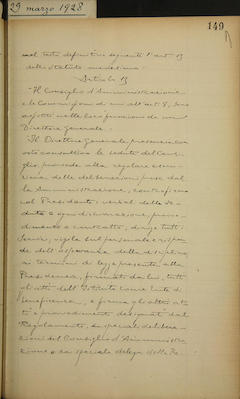 29 marzo 1928
149
nel testo definitivo seguente l'art. 13
dello Statuto medesimo:
Articolo 13
"Il Consiglio d'Amministrazione
e le Commissioni di cui all'art. 8, sono
assistiti nelle loro funzioni da un
Direttore Generale.
"Il Direttore Generale presenzia con
voto consultivo le sedute del Consi-
glio, provvede alla regolare esecu-
zione delle deliberazioni prese dal
la Amministrazione, controfirma
col Presidente i verbali delle se-
dute e ogni disposizione, provve-
dimento e contratto, dirige tutti i
servizi, vigila sul personale e rispon-
de dell'osservanza della disciplina
ai termini di legge, presenta alla
Presidenza, firmati da lui, tutti
gli atti dell'Istituto come Ente di
beneficenza, e firma gli altri at-
ti e provvedimenti designati dal
Regolamento, da speciali delibera-
zioni del Consiglio d'Amministra-
zione o da speciale delega della Pre-